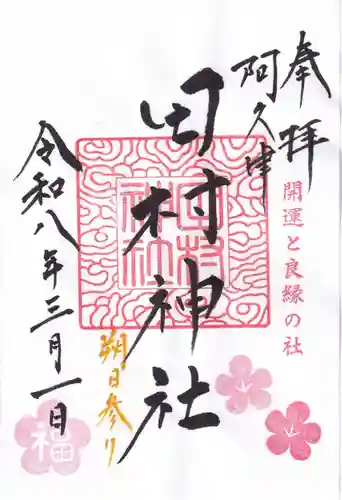 奉拝
阿久津
開運と良縁の社
田村神社
田村
神社
朔日参り
令和八年三月一日
福